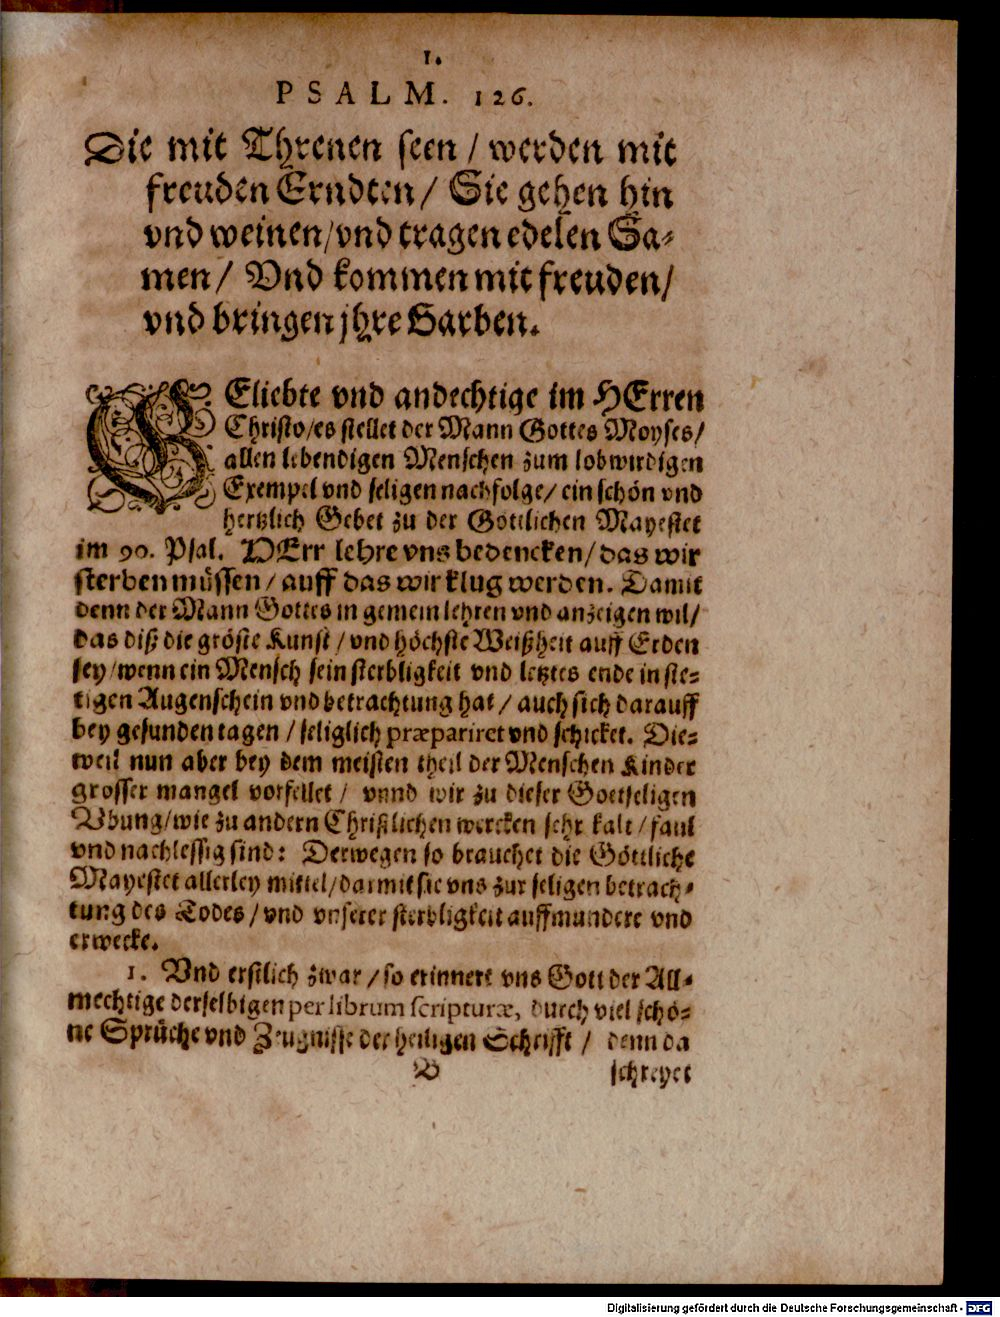 1.
PSALM. 126.
Die mit Threnen seen / werden mit
freuden Erndten / Sie gehen hin
vnd weinen / vnd tragen edelen Sa-
men / Vnd kommen mit freuden /
vnd bringen jhre Garben.
GEliebte vnd andechtige im HErren
Christo / es stellet der Mann Gottes Moyses /
allen lebendigen Menschen zum lobwirdigen
Exempel vnd seligen nachfolge / ein schön vnd
hertzlich Gebet zu der Göttlichen Mayestet
im 90. Psal. HErr lehre vns bedencken / das wir
sterben müssen / auff das wir klug werden. Damit
denn der Mann Gottes in gemein lehren vnd anzeigen wil /
das diß die gröste Kunst / vnd höchste Weißheit auff Erden
sey / wenn ein Mensch sein sterbligkeit vnd letztes ende in ste-
tigen Augenschein vnd betrachtung hat / auch sich darauff
bey gesunden tagen / seliglich præpariret vnd schicket. Die-
weil nun aber bey dem meisten theil der Menschen Kinder
grosser mangel vorfellet / vnnd wir zu dieser Gottseligen
Vbung / wie zu andern Christlichen wercken sehr kalt / faul
vnd nachlessig sind: Derwegen so brauchet die Göttliche
Mayestet allerley mittel / darmit sie vns zur seligen betrach-
tung des Todes / vnd vnserer sterbligkeit auffmundere vnd
erwecke.
1. Vnd erstlich zwar / so erinnert vns Gott der All-
mechtige derselbigen per librum scripturæ, durch viel schö-
ne Sprüche vnd Zeugnisse der heiligen Schrifft / denn da
B schreyet
Digitalisierung gefördert durch die Deutsche Forschungsgemeinschaft - DFG